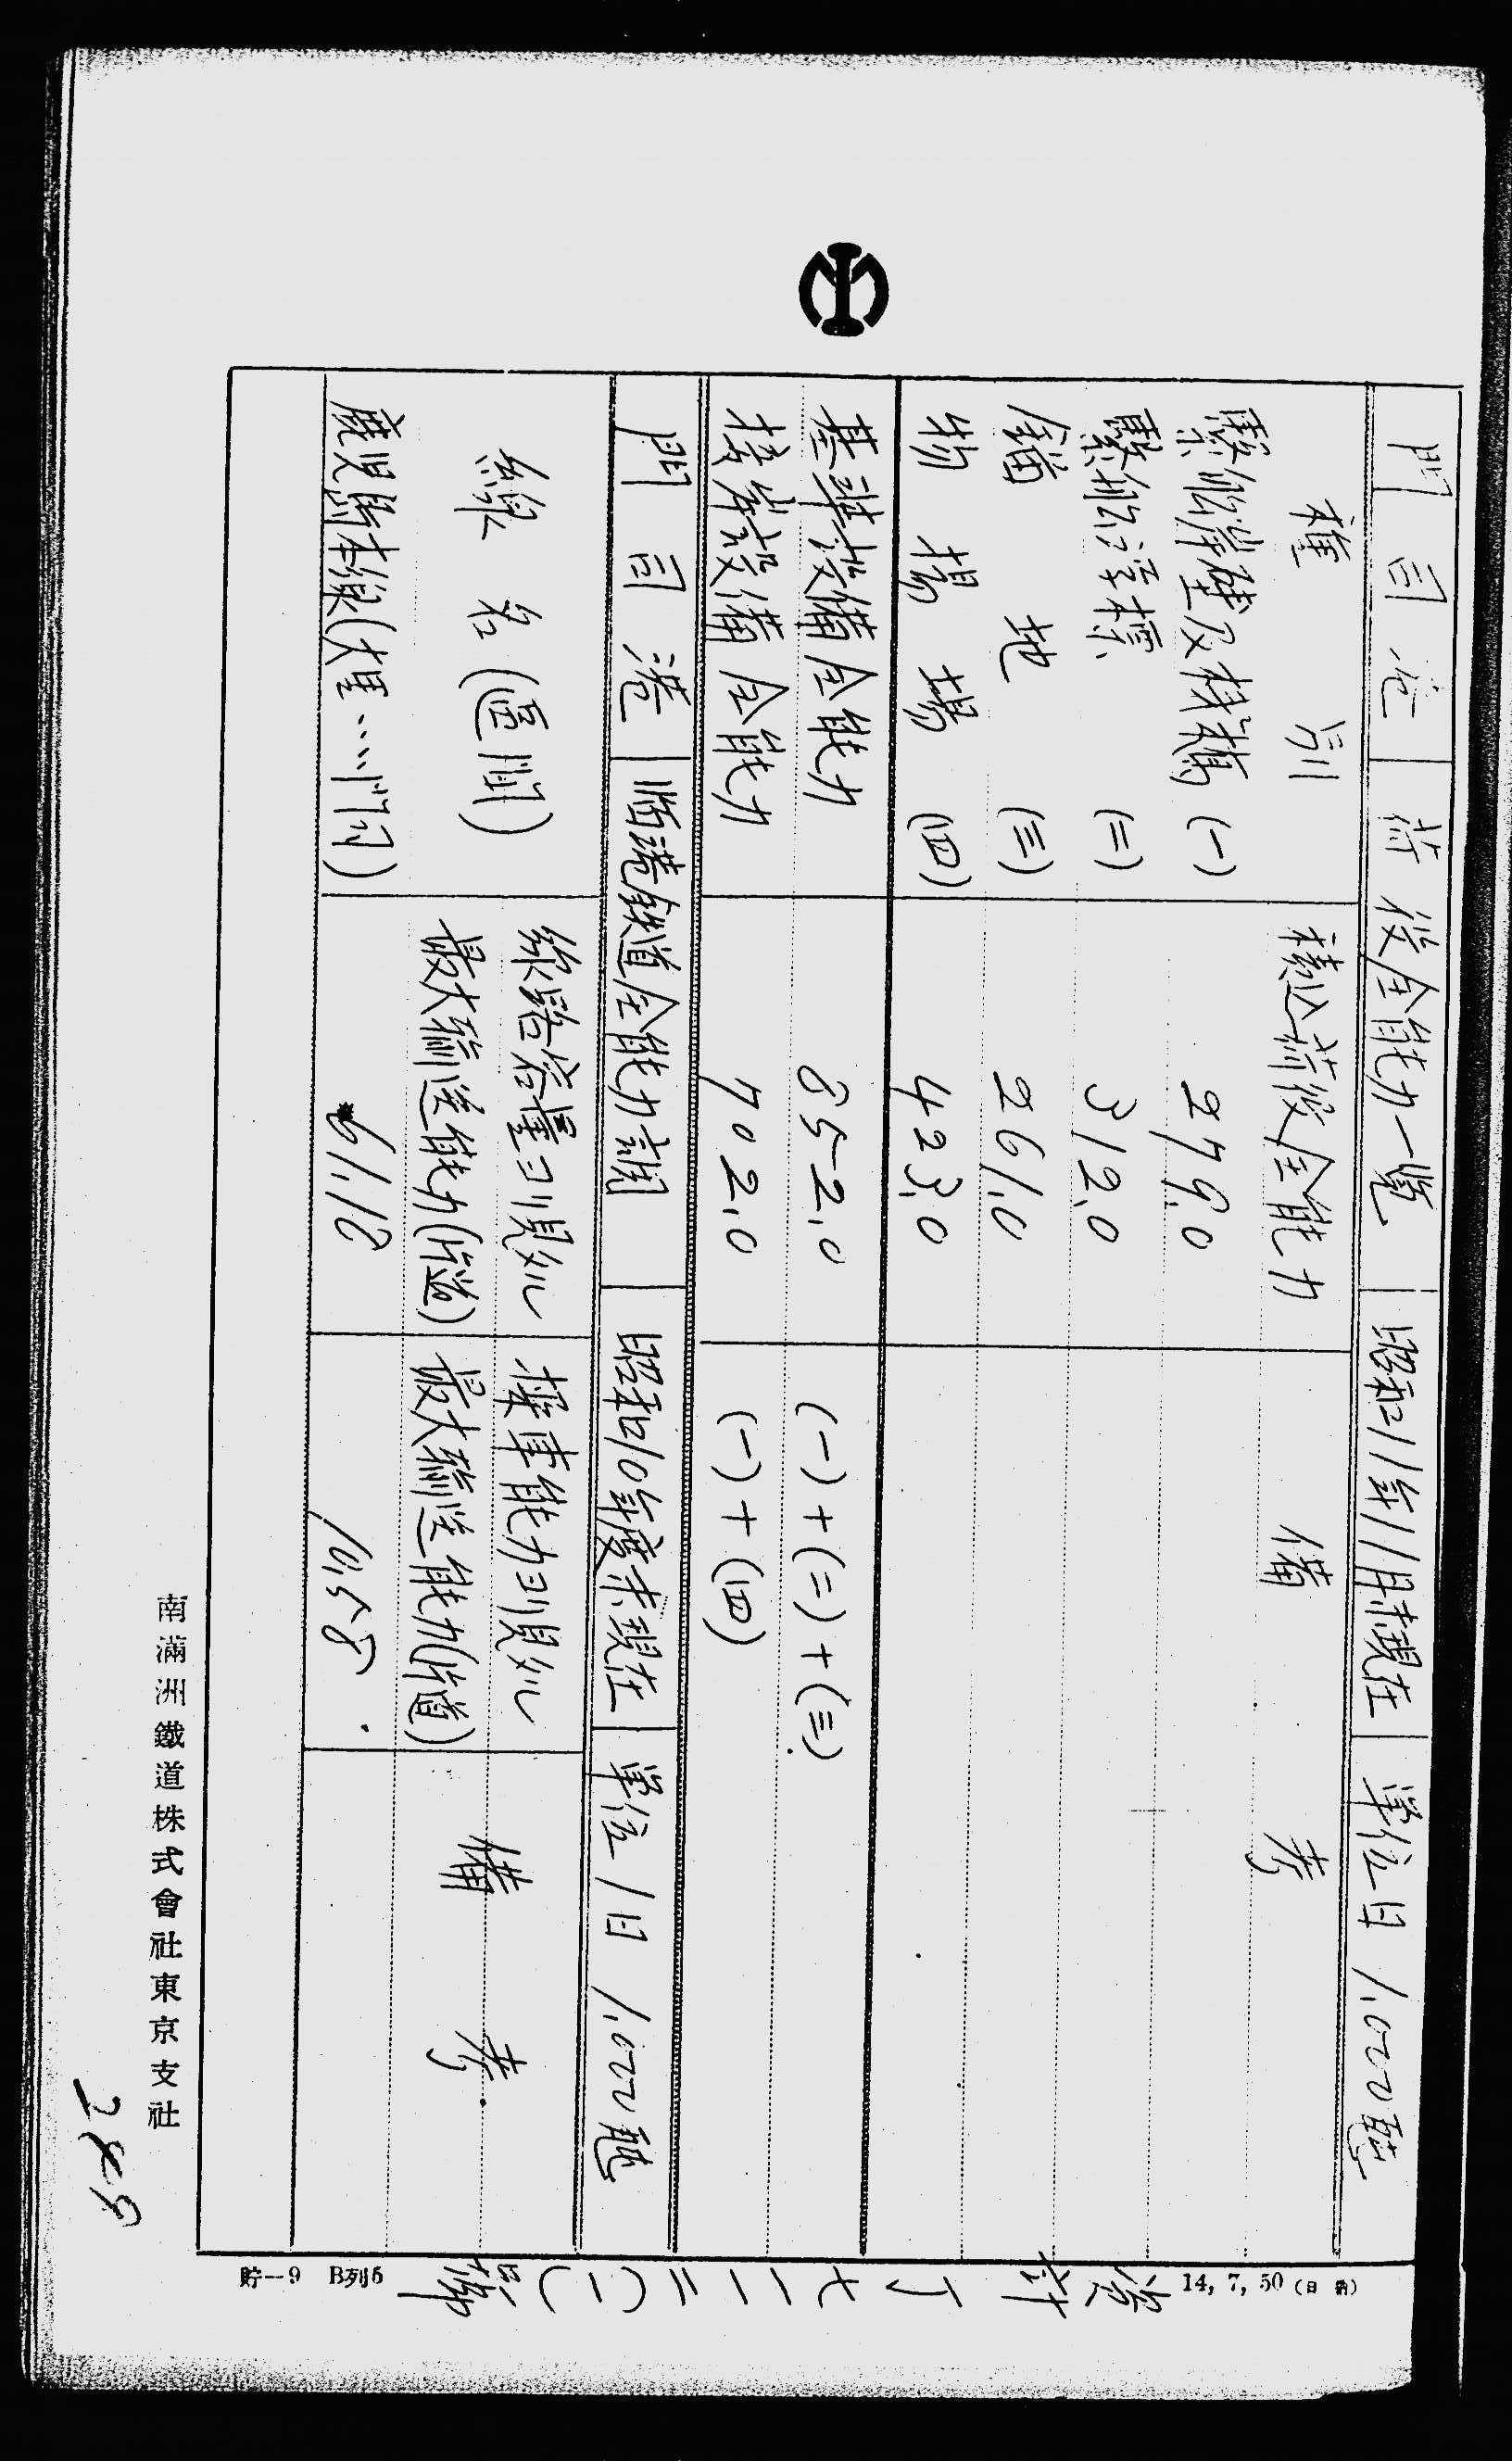 門司港 荷役全能力一覧 昭和11年11月末現在 単位日 1,000瓲
種別 積込荷役全能力 備考
繋船岸壁及桟橋 (一) 279.0
繋船浮標 (二) 312.0
錨地 (三) 261.0
物揚場 (四) 423.0
基準設備全能力 852.0 (一)+(二)+(三)
接岸設備全能力 702.0 (一)+(四)
門司港 臨港鉄道全能力調 昭和10年度末現在 単位1日 1,000瓲
線名(區間) 線路容量ヨリ見タル 操車能力ヨリ見タル 備考
最大輸送能力(片道) 最大輸送能力(片道)
鹿児島本線(大里……門司) 61.18 10.58
南滿洲鐵道株式會社東京支社
貯—9 B列5
14, 7, 50